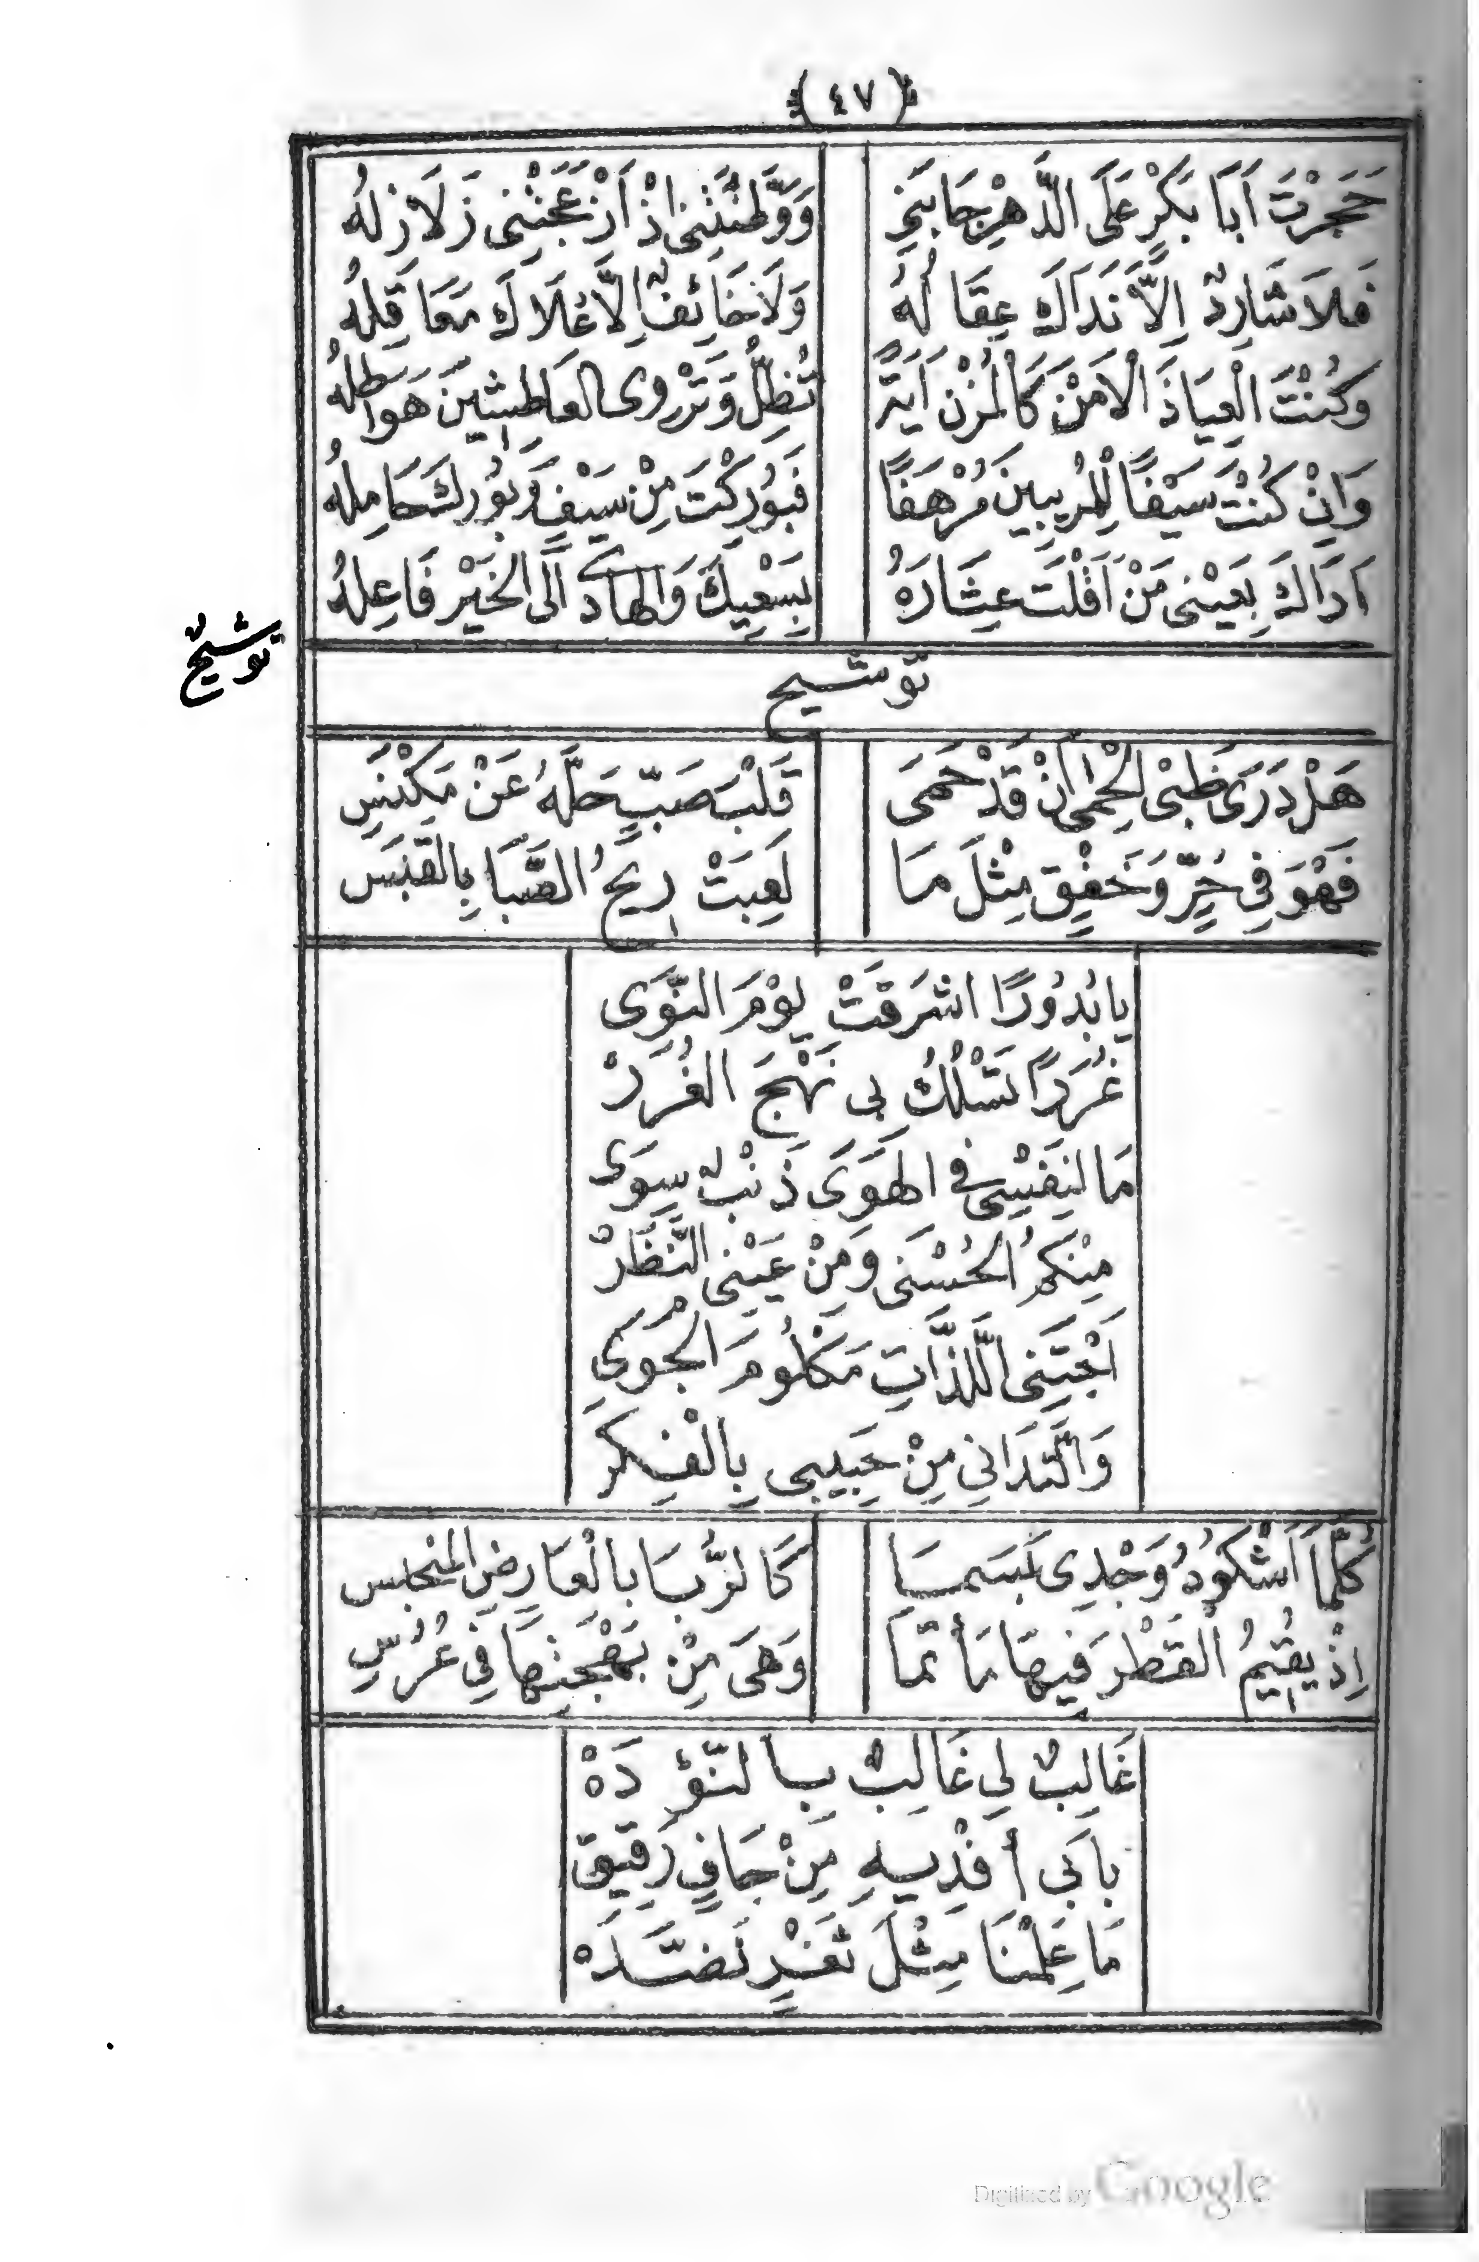 (٤٧)
حَجَرْتَ اَبَا بَكْرٍ عَلَى الدَّهْرِ جَانِبِي
وَوَطَّنْتَنِى اِذْ اَزْعَجَتْنِى زَلَازِلُهُ
فَلَا شَارِدٌ اِلَّا نَدَاكَ عِقَالُهُ
وَلَا خَائِفٌ اِلَّا عُلَاكَ مَعَاقِلُهُ
وَكُنْتَ الْعِيَاذَ الْاَمْنَ كَالْمُزْنِ اَيَةً
تُظِلُّ وَتَرْوِى العَاطِشِينَ هَوَاطِلُهُ
وَاِنْ كُنْتَ سَيْفًا لِلْمُرِيبِينَ مُرْهَفًا
فَبُورِكْتَ مِنْ سَيْفٍ وَبُورِكَ حَامِلُهُ
اَرَاكَ بِعَيْنِى مَنْ اَقَلْتَ عِثَارَهُ
بِسَعْيِكَ وَالهَادِى اِلَى الخَيْرِ فَاعِلُهُ
توشيح
توشيح
هَلْ دَرَى ظَبْىُ الْحِمَى اَنْ قَدْ حَمَى
قَلْبَ صَبٍّ حَلَّهُ عَنْ مَكْنَسِ
فَهْوَ فِى حَرٍّ وَخَفْقٍ مِثْلَ مَا
لَعِبَتْ رِيحُ الصَّبَا بِالقَبَسِ
يا بُدُورًا اشْرَقَتْ يَوْمَ النَّوَى
غُرَرًا تَسْلُكُ بِى نَهْجَ الغُرَرْ
مَا لِنَفْسِى فِى الهَوَى ذَنْبٌ سِوَى
مِنْكُمُ الحُسْنَى وَمِنْ عَيْنِى النَّظَرْ
اَجْتَنِى اللَّذَّاتِ مَكْلُومَ الجَوَى
وَالتَّدَانِى مِنْ حَبِيبِى بِالْفِكَرْ
كُلَّمَا اَشْكُوهُ وَجْدِى بَسَمَا
كَالرُّبَا بِالْعَارِضِ المنبجس
اِذْ يُقِيمُ القَطْرُ فِيهَا مَأتَمَا
وَهْىَ مِنْ بَهْجَتِهَا فِى عُرُسِ
غَالِبٌ لِى غَالِبٌ بِالتُّؤَدَهْ
بِاَبِى أَفْدِيهِ مِنْ جَافٍ رَقِيقْ
مَا عَلِمْنَا مِثْلَ ثَغْرٍ نَضَّدَهْ
Digitized by Google